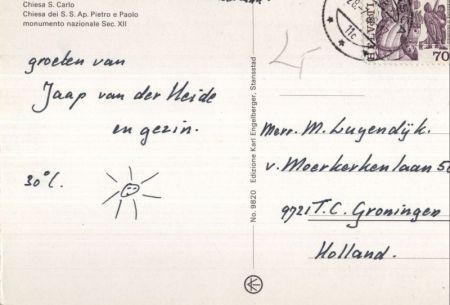 Chiesa S. Carlo
Chiesa dei S. S. Ap. Pietro e Paolo
monumento nazionale Sec. XII
groeten van
Jaap van der Heide
en gezin.
30°C.
No. 9820 Edizione Karl Engelberger, Stansstad
70
11c
Mr. M. Luyendijk.
v. Moerkerkenlaan 50
9721 T.C. Groningen
Holland.